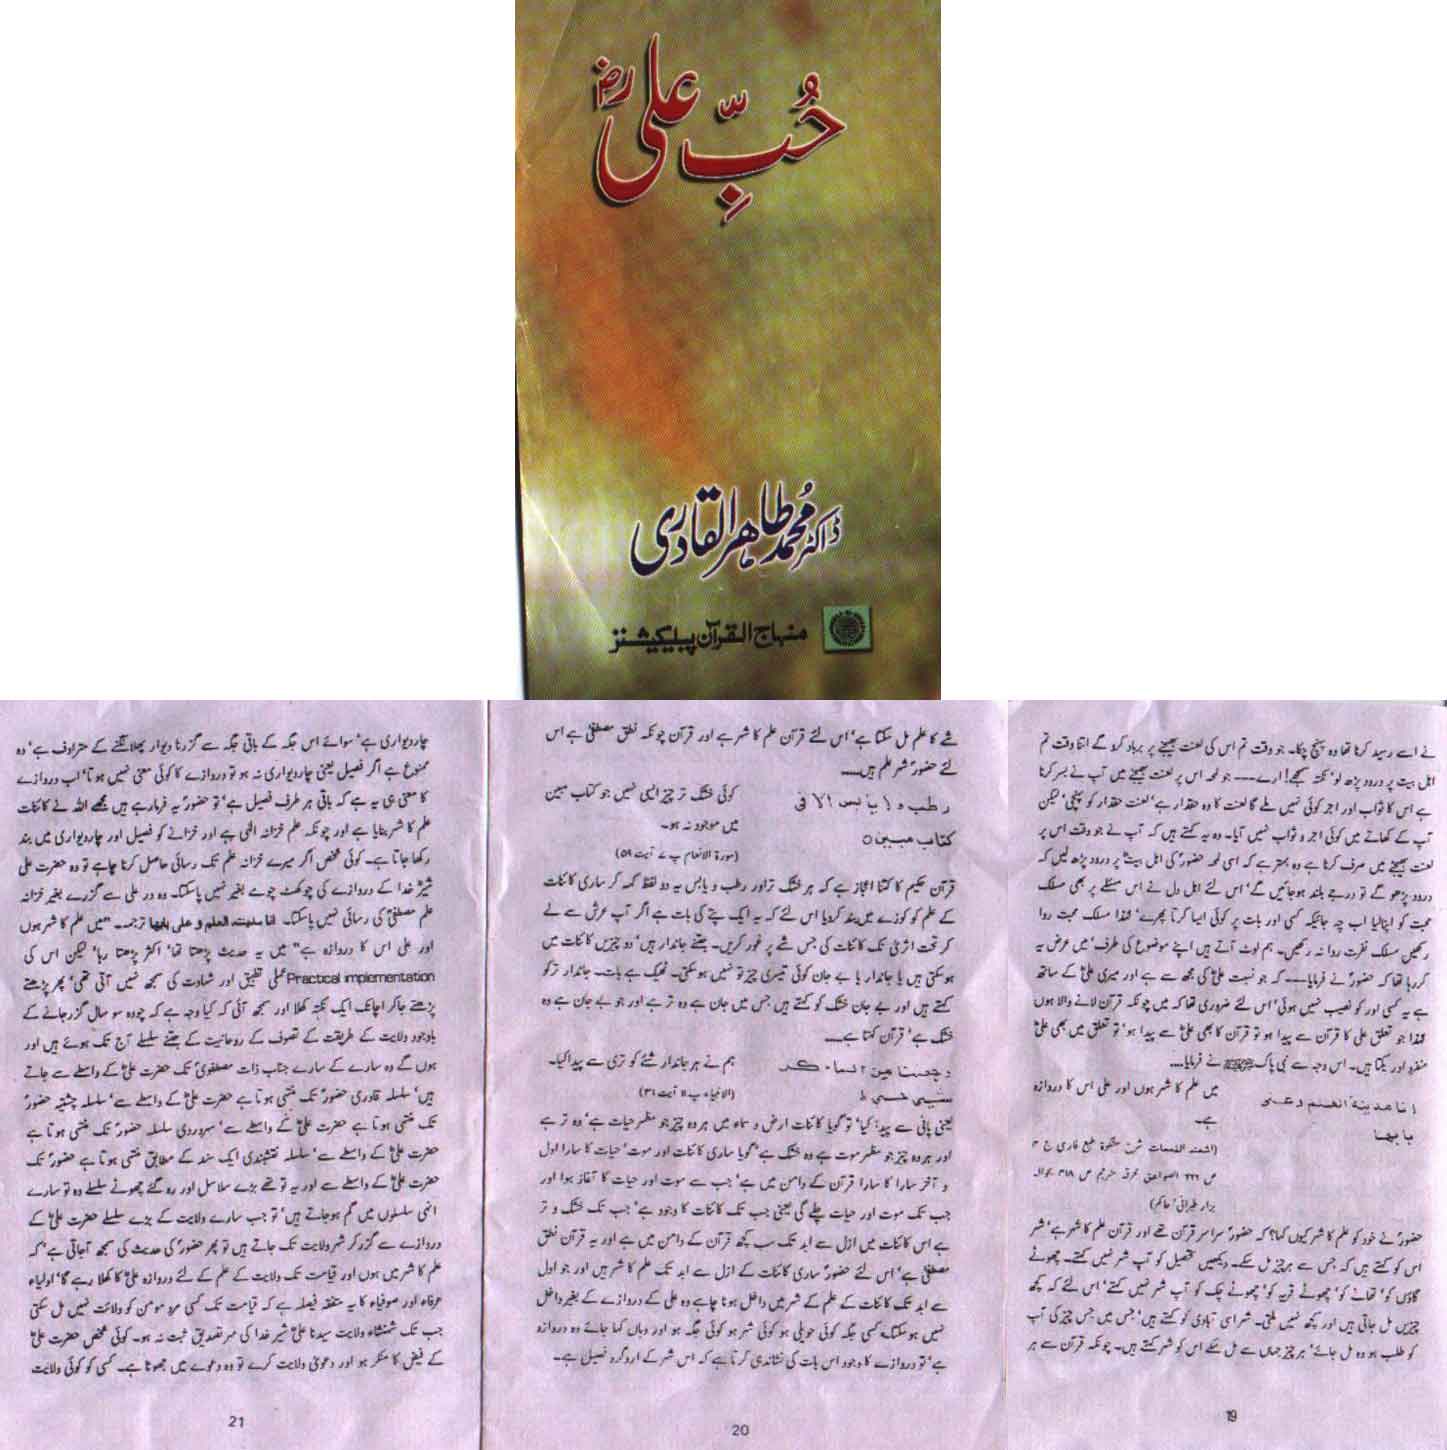 حُبِّ علی رضؓ
ڈاکٹر محمد طاہر القادری
منہاج القرآن پبلیکیشنز
نے اسے رسید کرنا تھا وہ پہنچ چکا۔ جو وقت تم اس کی لعنت بھیجنے پر برباد کرو گے اتنا وقت تم
اہل بیت پر درود پڑھ لو' نکتہ سمجھے! ارے --- جو لمحہ اس پر لعنت بھیجنے میں آپ نے بسر کرنا
ہے اس کا ثواب اور اجر کوئی نہیں ملے گا لعنت کا وہ حقدار ہے' لعنت حقدار کو پہنچی' لیکن
آپ کے کھاتے میں کوئی اجر و ثواب نہیں آیا۔ وہ یہ کہتے ہیں کہ آپ نے جو وقت اس پر
لعنت بھیجنے میں صرف کرنا ہے وہ بہتر ہے کہ اسی لمحہ حضورؐ کی اہل بیتؓ پر درود پڑھ لیں کہ
درود پڑھو گے تو درجے بلند ہو جائیں گے' اس لئے اہل دل نے اس مسئلے پر بھی مسلک
محبت کو اپنالیا اب چہ جائیکہ کسی اور بات پر کوئی ایسا کرتا پھرے' لہٰذا مسلک محبت روا
رکھیں مسلک نفرت روا نہ رکھیں۔ ہم لوٹ آتے ہیں اپنے موضوع کی طرف' میں عرض یہ
کر رہا تھا کہ حضورؐ نے فرمایا --- کہ جو نسبت علیؓ کی مجھ سے ہے اور میری علیؓ کے ساتھ
ہے یہ کسی اور کو نصیب نہیں ہوئی' اس لئے ضروری تھا کہ میں چونکہ قرآن لانے والا ہوں
لہٰذا جو تعلق علی کا قرآن سے پیدا ہو تو قرآن کا بھی علیؓ سے پیدا ہو' تو تعلق میں بھی علیؓ
منفرد اور یکتا ہیں۔ اس وجہ سے نبی پاک ﷺ نے فرمایا ....
انا مدینۃ العلم و علی بابھا
میں علم کا شہر ہوں اور علی اس کا دروازہ
ہے۔
(اشعتہ اللمعات شرح مشکوٰۃ طبع فارسی ج ۴
ص ۶۶۶ الصواعق محرقہ مترجم ص ۴۱۸ بحوالہ
بزار طبرانی' حاکم)
حضورؐ نے خود کو علم کا شہر کیوں کہا؟ کہ حضورؐ سراسر قرآن تھے اور قرآن علم کا شہر ہے' شہر
اس کو کہتے ہیں کہ جس سے ہر چیز مل سکے۔ دیکھیں تحصیل کو آپ شہر نہیں کہتے۔ چھوٹے
گاؤں کو' تھانے کو' چھوٹے قریہ کو' چھوٹے چک کو آپ شہر نہیں کہتے' اس لئے کہ کچھ
چیزیں مل جاتی ہیں اور کچھ نہیں ملتی۔ شہر اسی آبادی کو کہتے ہیں' جس میں جس چیز کی آپ
کو طلب ہو وہ مل جائے' ہر چیز جہاں سے مل سکے اس کو شہر کہتے ہیں۔ چونکہ قرآن سے ہر
19
شے کا علم مل سکتا ہے' اس لئے قرآن علم کا شہر ہے اور قرآن چونکہ نطق مصطفیٰؐ ہے اس
لئے حضورؐ شہر علم ہیں ....
رطب ولا یابس الا فی
کتاب مبین ○
کوئی خشک تر چیز ایسی نہیں جو کتاب مبین
میں موجود نہ ہو۔
(سورۃ الانعام پ ۷ آیت ۵۹)
قرآن حکیم کا کتنا اعجاز ہے کہ ہر خشک تر اور رطب و یابس یہ دو لفظ کہہ کر ساری کائنات
کے علم کو کوزے میں بند کر دیا اس لئے کہ یہ ایک پتے کی بات ہے اگر آپ عرش سے لے
کر تحت الثریٰ تک کائنات کی جس شے پر غور کریں۔ جتنے جاندار ہیں' دو چیزیں کائنات میں
ہو سکتی ہیں یا جاندار یا بے جان کوئی تیسری چیز تو نہیں ہو سکتی۔ ٹھیک ہے بات۔ جاندار تر کو
کہتے ہیں اور بے جان خشک کو کہتے ہیں جس میں جان ہے وہ تر ہے اور جو بے جان ہے وہ
خشک ہے' قرآن کہتا ہے ....
وجعلنا من الماء کل
شیئی حیی ط
ہم نے ہر جاندار شئے کو تری سے پیدا کیا۔
(الانبیاء پ ۱۷ آیت ۳۱)
یعنی پانی سے پیدا کیا' تو گویا کائنات ارض و سماء میں ہر وہ چیز جو مظہر حیات ہے' وہ تر ہے
اور ہر وہ چیز جو مظہر موت ہے وہ خشک ہے' گویا ساری کائنات اور موت' حیات کا سارا اول
و آخر سارا کا سارا قرآن کے دامن میں ہے' جب سے موت اور حیات کا آغاز ہوا اور
جب تک موت اور حیات چلے گی یعنی جب تک کائنات کا وجود ہے' جب تک خشک و تر
ہے اس کائنات میں ازل سے ابد تک سب کچھ قرآن کے دامن میں ہے اور یہ قرآن نطق
مصطفیٰؐ ہے' اس لئے حضورؐ ساری کائنات کے ازل سے ابد تک علم کا شہر ہیں اور جو اول
سے ابد تک کائنات کے علم کے شہر میں داخل ہونا چاہے وہ علی کے دروازے کے بغیر داخل
نہیں ہو سکتا۔ کسی جگہ کوئی حویلی ہو کوئی شہر ہو کوئی جگہ ہو اور وہاں کہا جائے وہ دروازہ
ہے' تو دروازے کا وجود اس بات کی نشاندی کرتا ہے کہ اس شہر کے اردگرد فصیل ہے۔
20
چار دیواری ہے' سوائے اس جگہ کے باقی جگہ سے گزرنا دیوار پھلانگنے کے مترادف ہے' وہ
ممنوع ہے اگر فصیل یعنی چار دیواری نہ ہو تو دروازے کا کوئی معنی نہیں ہوتا' اب دروازے
کا معنی ہی یہ ہے کہ باقی ہر طرف فصیل ہے' تو حضورؐ یہ فرما رہے ہیں مجھے اللہ نے کائنات
علم کا شہر بنایا ہے اور چونکہ علم خزانہ الٰہی ہے اور خزانے کو فصیل اور چار دیواری میں بند
رکھا جاتا ہے۔ کوئی شخص اگر میرے خزانہ علم تک رسائی حاصل کرنا چاہے تو وہ حضرت علی
شیرؓ خدا کے دروازے کی چوکھٹ چومے بغیر نہیں پا سکتا۔ وہ در علی سے گزرے بغیر خزانہ
علم مصطفیٰؐ کی رسائی نہیں پا سکتا۔ انا مدینت العلم و علی بابھا ترجمہ۔ "میں علم کا شہر ہوں
اور علی اس کا دروازہ ہے" میں یہ حدیث پڑھتا تھا' اکثر پڑھتا رہا' لیکن اس کی
Practical implementation عملی تطبیق اور شہادت کی سمجھ نہیں آتی تھی' پھر پڑھتے
پڑھتے جاکر اچانک ایک نکتہ کھلا اور سمجھ آئی کہ کیا وجہ ہے کہ چودہ سو سال گزر جانے کے
باوجود ولایت کے طریقت کے تصوف کے روحانیت کے جتنے سلسلے آج تک ہوئے ہیں اور
ہوں گے وہ سارے کے سارے جناب ذات مصطفویؐ تک حضرت علیؓ کے واسطے سے جاتے
ہیں' سلسلہ قادری حضورؐ تک منتہی ہوتا ہے حضرت علیؓ کے واسطے سے' سلسلہ چشتیہ حضورؐ
تک منتہی ہوتا ہے حضرت علیؓ کے واسطے سے' سہروردی سلسلہ حضورؐ تک منتہی ہوتا ہے
حضرت علیؓ کے واسطے سے' سلسلہ نقشبندی ایک سند کے مطابق منتہی ہوتا ہے حضورؐ تک
حضرت علیؓ کے واسطے سے اور یہ تو تھے بڑے سلاسل اور رہ گئے چھوٹے سلسلے وہ تو سارے
انہی سلسلوں میں گم ہو جاتے ہیں' تو جب سارے ولایت کے بڑے سلسلے حضرت علیؓ کے
دروازے سے گزر کر شہر ولایت تک جاتے ہیں تو پھر حضورؐ کی حدیث کی سمجھ آجاتی ہے' کہ
علم کا شہر میں ہوں اور قیامت تک ولایت کے علم کے لئے دروازہ علیؓ کا کھلا رہے گا' اولیاء
عرفاء اور صوفیاء کا یہ متفقہ فیصلہ ہے کہ قیامت تک کسی مرد مومن کو ولائت نہیں مل سکتی
جب تک شہنشاہ ولایت سیدنا علیؓ شیر خدا کی مہر تصدیق ثبت نہ ہو۔ کوئی شخص حضرت علیؓ
کے فیض کا منکر ہو اور دعویٰ ولایت کرے تو وہ دعوے میں جھوٹا ہے۔ کسی کو کوئی ولایت
21